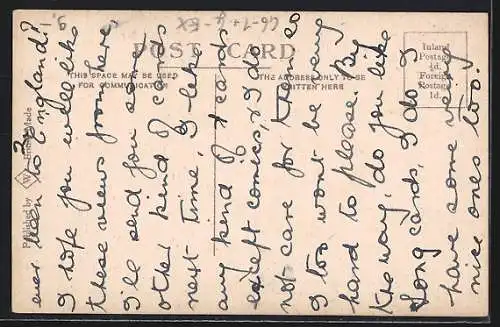 POST CARD
THIS SPACE MAY BE USED
FOR COMMUNICATION
THE ADDRESS ONLY TO BE
WRITTEN HERE
Inland
Postage
½d.
Foreign
Postage
1d.
Published by
Made
ever been to England?
I hope you will like
these views from here,
I'll send you some
other kind of cards
next time. I like
any kind of cards
except comics, & I do
not care for them so
I too wont be very
hard to please. By
the way, do you like
long cards. I do, I
have some very
nice ones too.